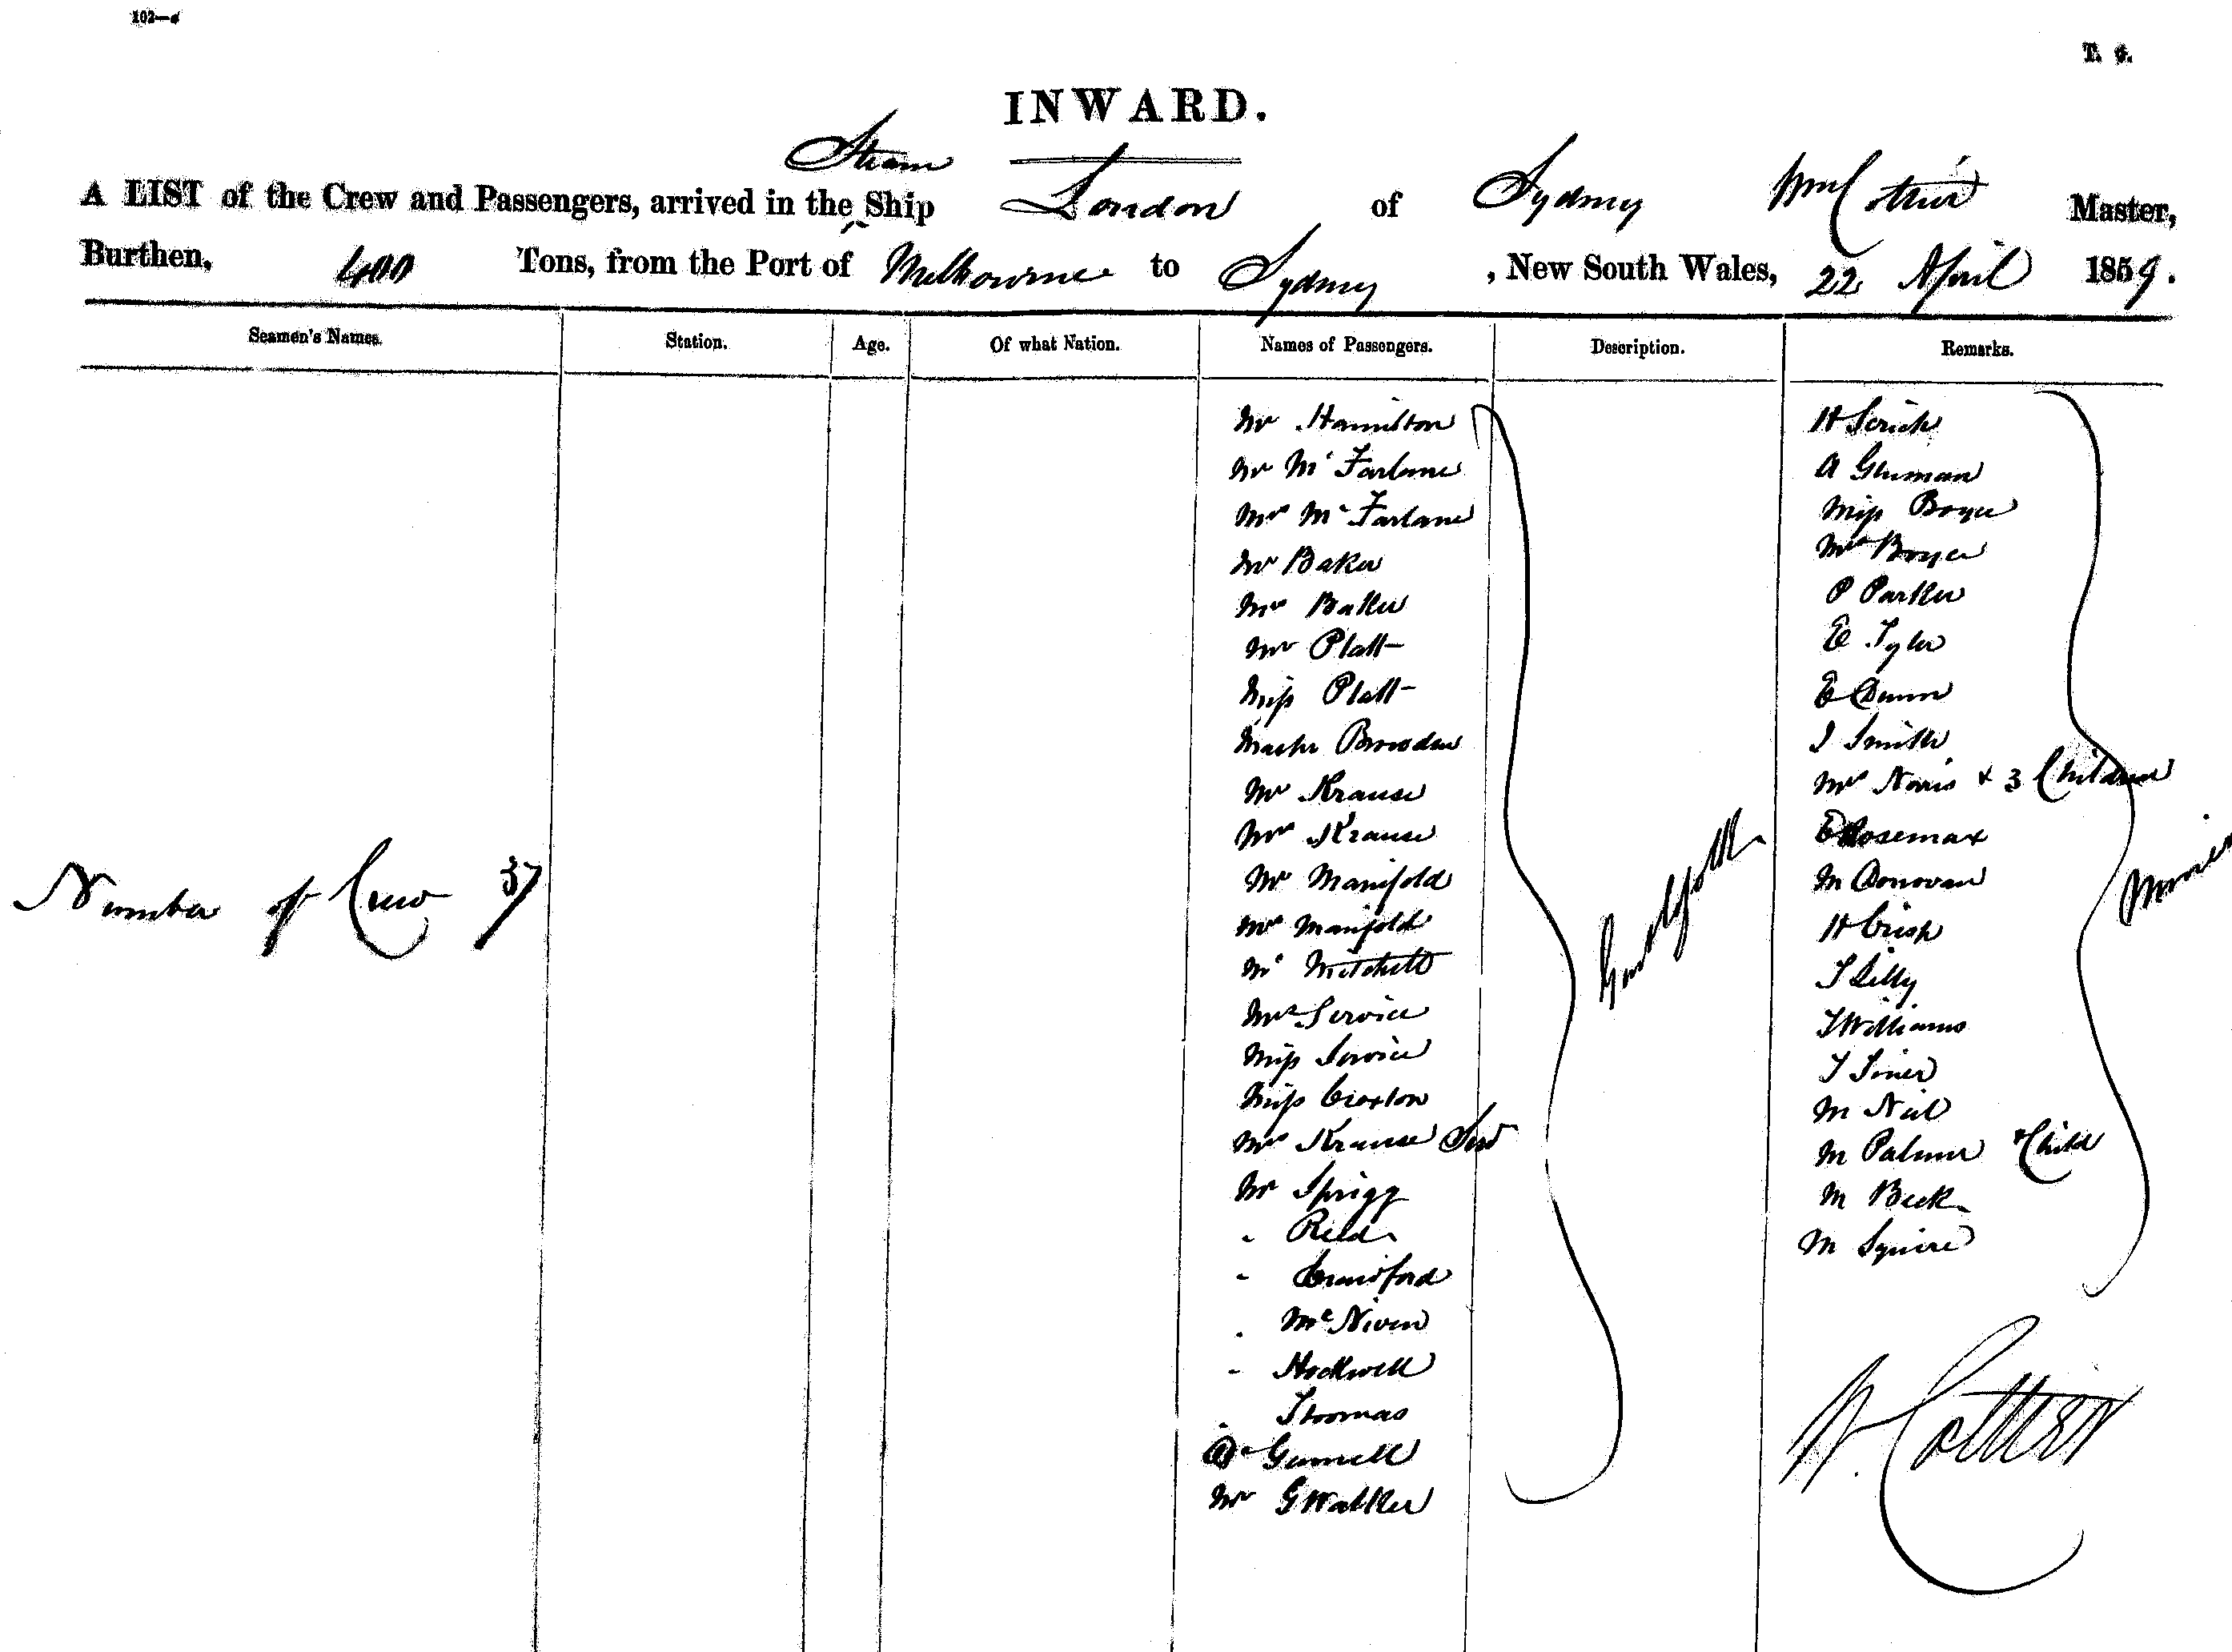 102—a
T. 6.
INWARD.
Steam
A LIST of the Crew and Passengers, arrived in the Ship London of Sydney Wm Cottier Master,
Burthen, 400 Tons, from the Port of Melbourne to Sydney, New South Wales, 22 April 1859.
Seamen's Names. Station. Age. Of what Nation. Names of Passengers. Description. Remarks.
Number of Crew 37
Mr Hamilton
Mr Mc Farlane
Mrs Mc Farlane
Mr Baker
Mrs Baker
Mr Platt
Miss Platt
Master Browden
Mr Krause
Mrs Krause
Mr Manifold
Mrs Manifold
Mr Mitchell
Mrs Service
Miss Service
Miss Croxton
Mrs Krause Serv
Mr Sprigg
" Reed
" Crawford
" Mc Niven
" Hockwell
" Thomas
Dr Gummell
Mr G Walker
H
A
Miss Boyce
Mrs Boyce
P Parker
E Tyler
E Dunn
J Smith
Mrs Norris & 3 Children
M Donovan
H Crisp
T Lilly
T Williams
T
M Neil
M Palmer & Child
M Beek
M Squire
W. Cottier